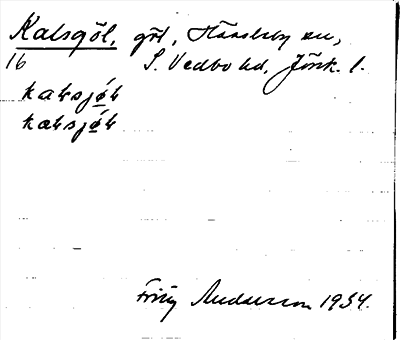 Kalsgöl, göl, Hässleby sn,
16 S. Vedbo hd, Jönk. l.
kaɫsjø̀ɫ
kaɫsjø̀ɫ
Fritz Andersson 1934.